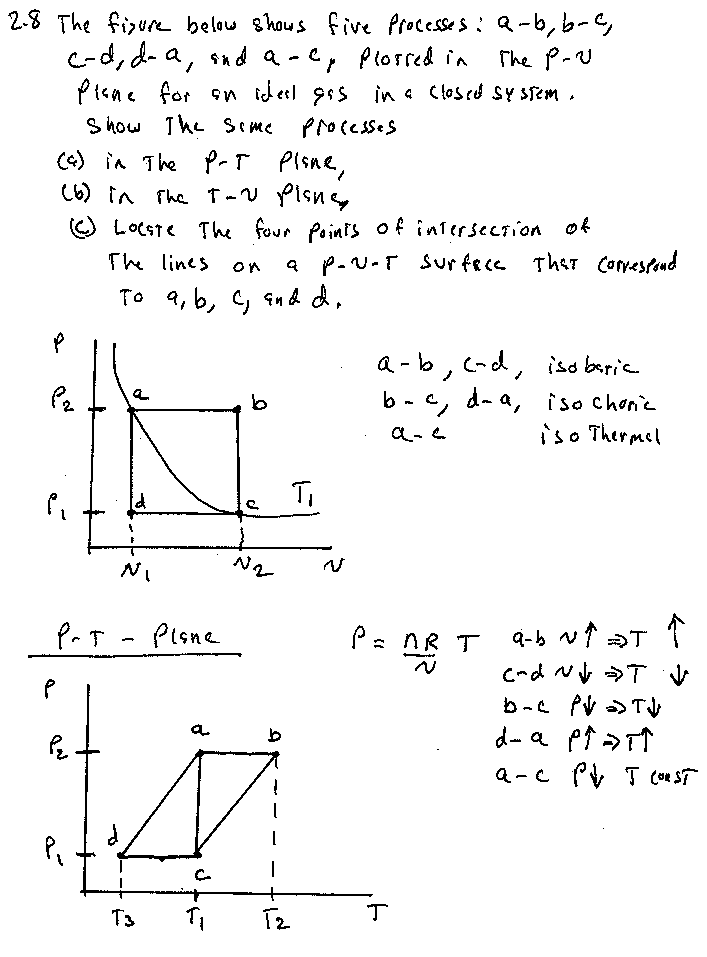 2.8 The figure below shows five processes: a-b, b-c,
c-d, d-a, and a-c, plotted in the P-v
plane for an ideal gas in a closed system.
Show the same processes
(a) in the P-T plane,
(b) in the T-v plane,
(c) Locate the four points of intersection of
the lines on a p-v-T surface that correspond
to a, b, c, and d.
P
a-b, c-d, isobaric
P2 a b
b-c, d-a, isochoric
a-c isothermal
P1 d c T1
v1 v2 v
P-T - Plane
P = nR/v T
a-b v↑ ⇒T ↑
c-d v↓ ⇒T ↓
b-c P↓ ⇒T↓
d-a P↑ ⇒T↑
a-c P↓ T const
P
P2 a b
P1 d c
T3 T1 T2 T